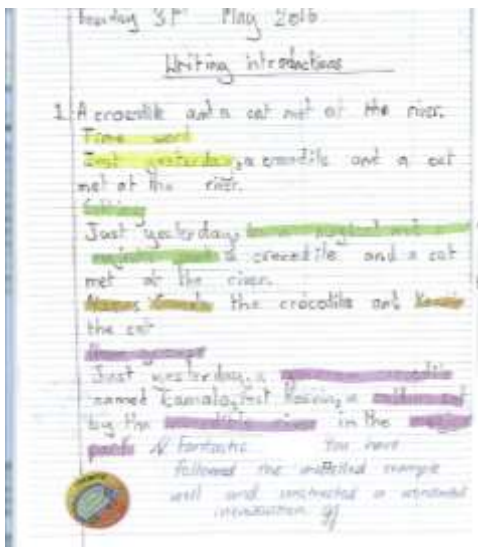 Tuesday 31st May 2016
Writing introductions
1. A crocodile and a cat met at the river.
Time word
Just yesterday, a crocodile and a cat
met at the river.
Setting
Just yesterday, in a
a crocodile and a cat
met at the river.
Names the crocodile and
the cat
Just yesterday, a crocodile
named met a
by the incredible river in the magic
park Fantastic. You have
followed the modelled example
well and constructed a wonderful
introduction.